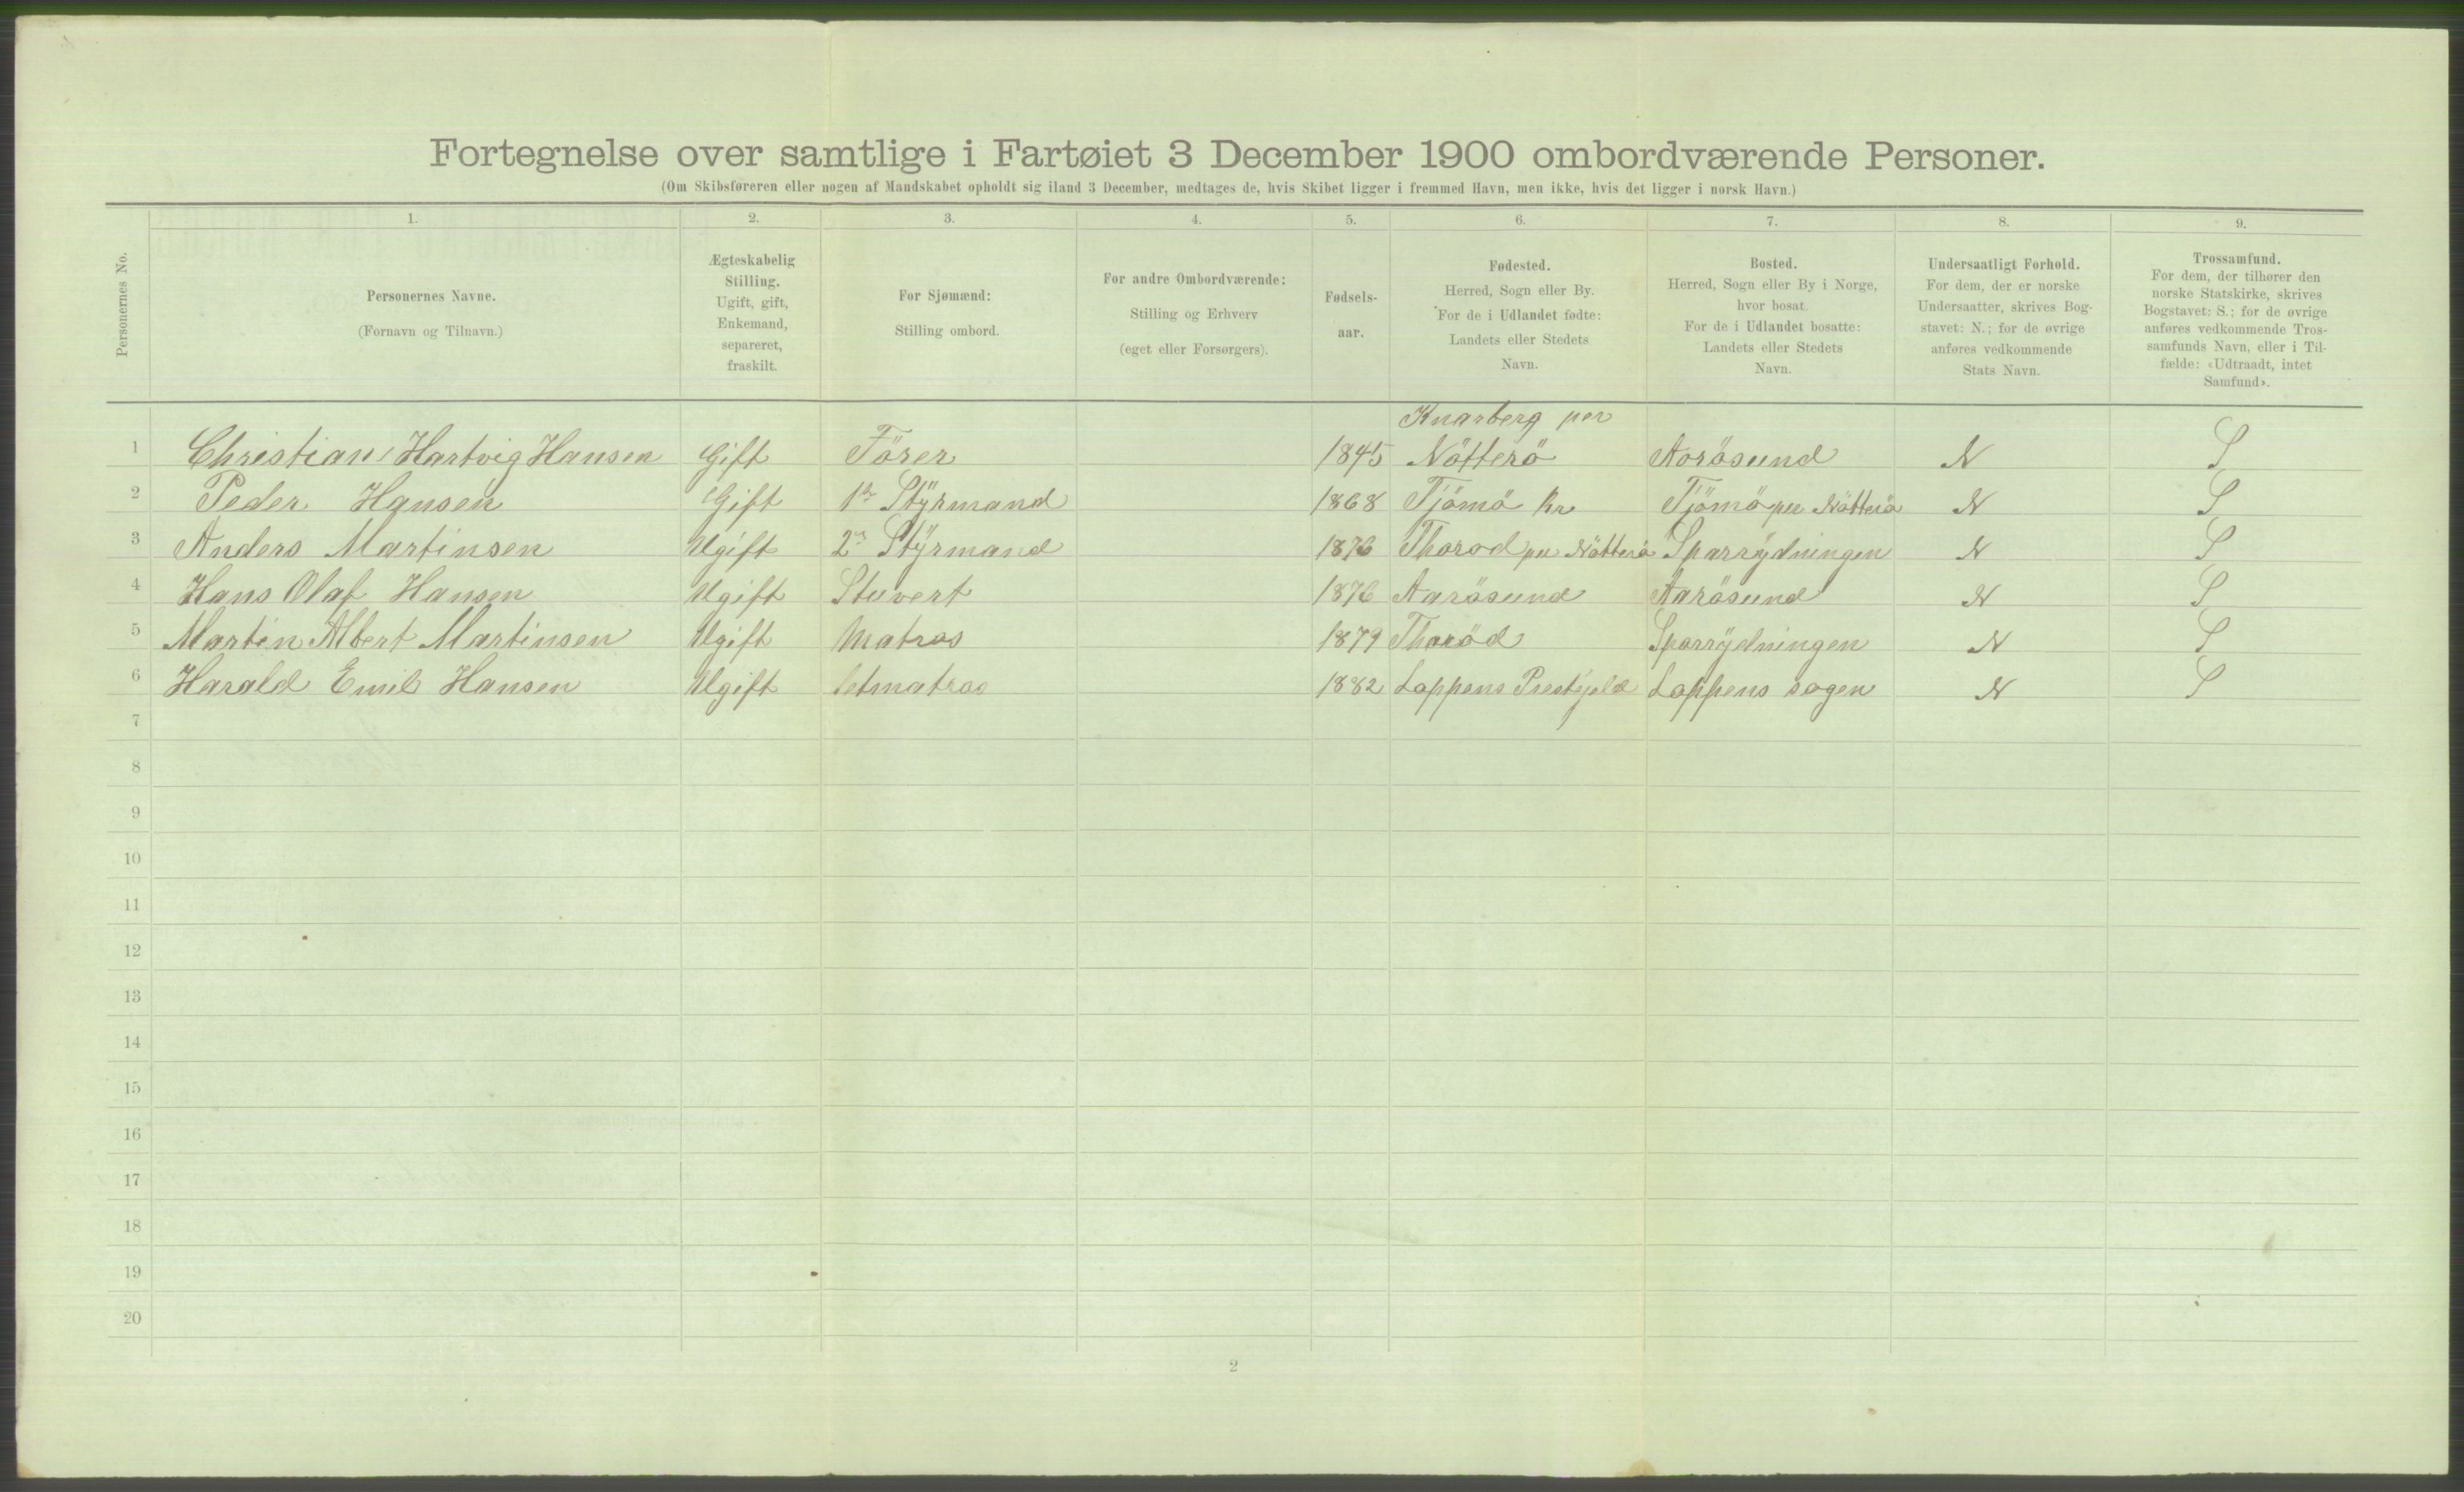 Fortegnelse over samtlige i Fartøiet 3 December 1900 ombordværende Personer.
(Om Skibsføreren eller nogen af Mandskabet opholdt sig iland 3 December, medtages de, hvis Skibet ligger i fremmed Havn, men ikke, hvis det ligger i norsk Havn.)
Personernes No.
1.
Personernes Navne.
(Fornavn og Tilnavn.)
2.
Ægteskabelig
Stilling.
Ugift, gift,
Enkemand,
separeret,
fraskilt.
3.
For Sjømænd:
Stilling ombord.
4.
For andre Ombordværende:
Stilling og Erhverv
(eget eller Forsørgers).
5.
Fødsels-
aar.
6.
Fødested.
Herred, Sogn eller By.
For de i Udlandet fødte:
Landets eller Stedets
Navn.
7.
Bosted.
Herred, Sogn eller By i Norge,
hvor bosat.
For de i Udlandet bosatte:
Landets eller Stedets
Navn.
8.
Undersaatligt Forhold.
For dem, der er norske
Undersaatter, skrives Bog-
stavet: N.; for de øvrige
anføres vedkommende
Stats Navn.
9.
Trossamfund.
For dem, der tilhører den
norske Statskirke, skrives
Bogstavet: S.; for de øvrige
anføres vedkommende Tros-
samfunds Navn, eller i Til-
fælde: «Udtraadt, intet
Samfund».
Knarberg per
1 Christian Hartvig Hansen Gift Förer 1845 Nötterö Aorösund N S
2 Peder Hansen Gift 1ste Stÿrmand 1868 Tjömö Tjömö per Nötterö N S
3 Anders Martinsen Ugift 2n Stÿrmand 1876 Thorod per Nötterö Sparrÿdningen N S
4 Hans Olaf Hansen Ugift Stuvert 1876 Aarösund Aarösund N S
5 Martin Albert Martinsen Ugift Matros 1879 Thoröd Sparrÿdningen N S
6 Harald Emil Hansen Ugift letmatros 1882 Loppens Prestejeld Loppens sogen N S
7
8
9
10
11
12
13
14
15
16
17
18
19
20
2